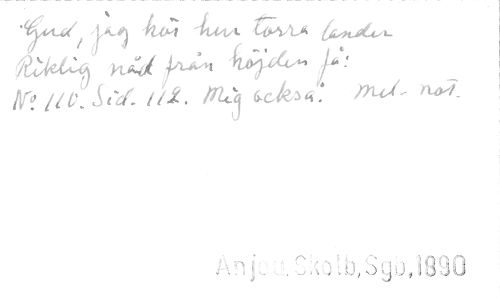 Gud, jag hör hur torra länder
Riklig nåd från höjden få:
No 110. Sid. 112. Mig också. Mel. not.
Anjou, Skolb, Sgb, 1890